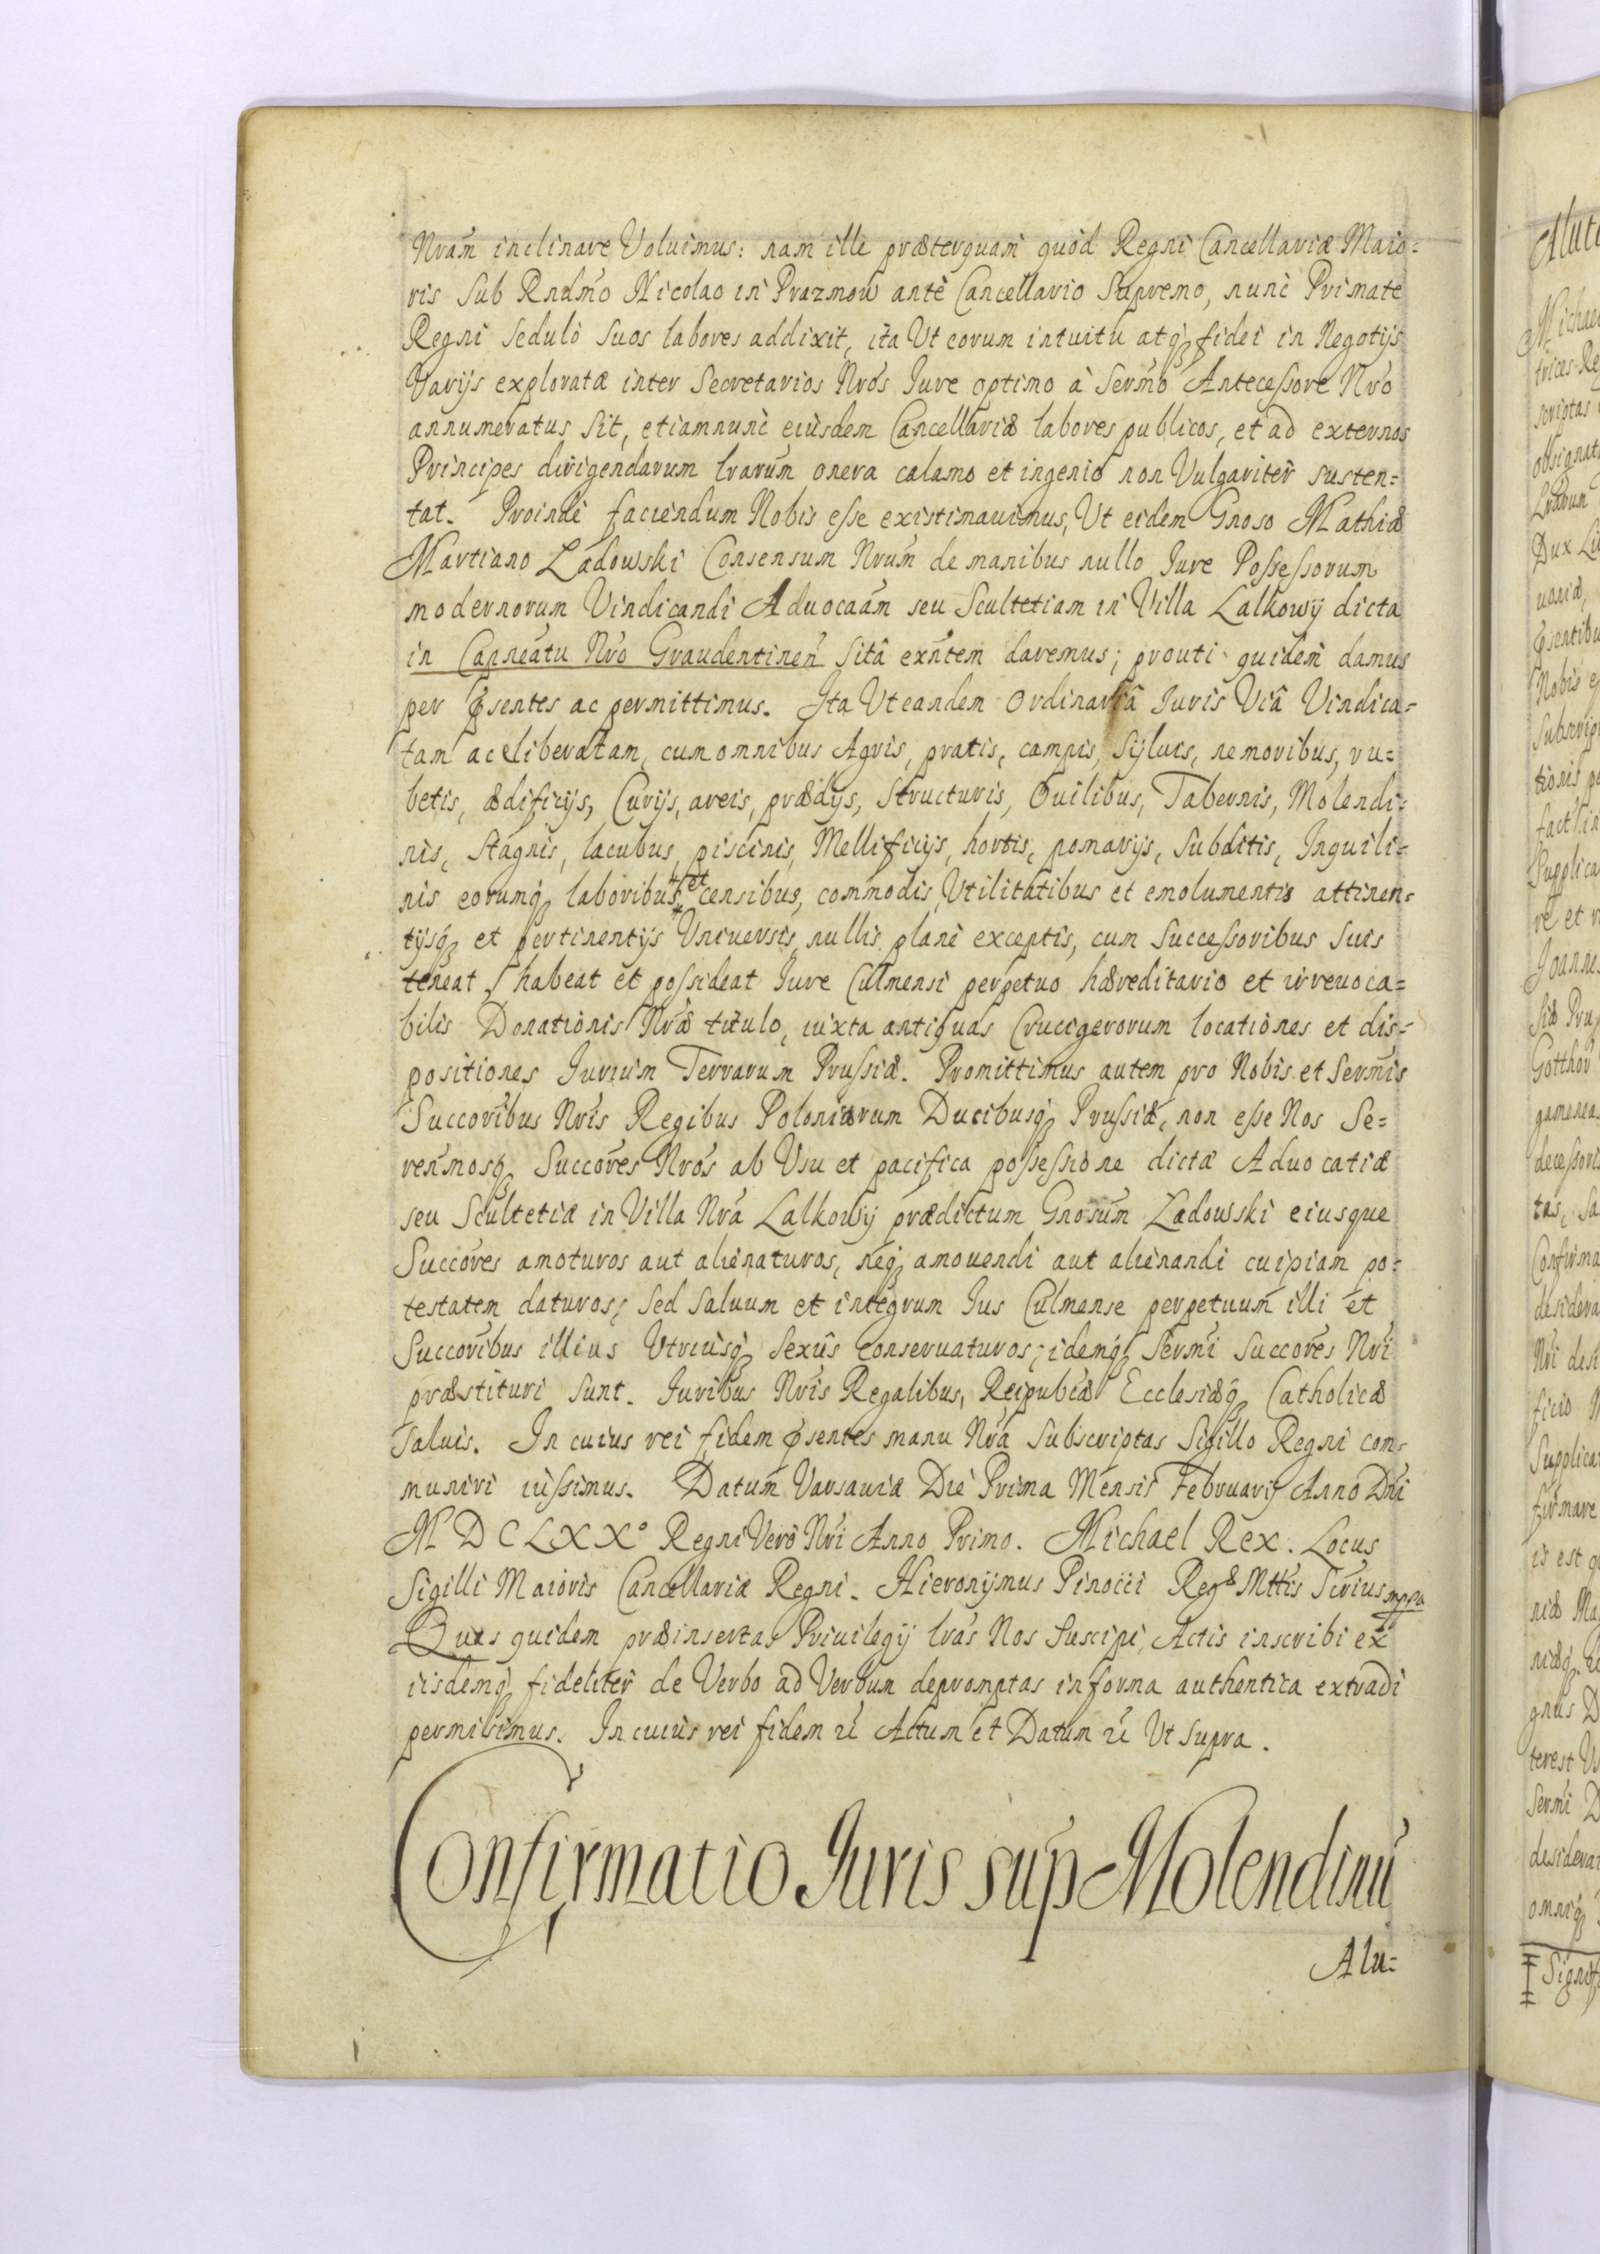 Nram inclinare Voluimus: nam ille præterquam quòd Regni Cancellariæ Maio=
ris sub Rndmo Nicolao in Prazmow antè Cancellario Supremo, nunc Primate
Regni sedulò suos labores addixit, ita Ut eorum intuitu atq fidei in Negotijs
Varijs exploratæ inter Secretarios Nros Jure optimo à Sermo Antecessore Nro
annumeratus sit, etiamnunc eiusdem Cancellariæ labores publicos, et ad externos
Principes dirigendarum lrarum onera calamo et ingenio non Vulgariter susten=
tat. Proinde faciendum Nobis esse existimauimus, Ut eidem Gnoso Mathiæ
Martiano Ladowski Consensum Nrum de manibus nullo Jure Possessorum
modernorum Vindicandi Aduocaam seu Scultetiam in Villa Lalkowy dicta
in Capneatu Nro Graudentinen sitâ exntem daremus; prouti quidem damus
per psentes ac permittimus. Ita Ut eandem Ordinariâ Juris Viâ Vindica=
tam ac liberatam, cum omnibus Agris, pratis, campis, syluis, nemoribus, ru=
betis, ædificijs, Curijs, areis, prædijs, structuris, Ouilibus, Tabernis, Molendi=
nis, stagnis, lacubus, piscinis, Mellificijs, hortis, pomarijs, subditis, Inquili=
nis eorumq laboribus, et censibus, commodis, Utilitatibus et emolumentis attinen=
tijsq et pertinentijs Uniuersis, nullis planè exceptis, cum Successoribus suis
teneat, habeat et possideat Jure Culmensi perpetuo hæreditario et irreuoca=
bilis Donationis Nræ titulo, iuxta antiquas Crucigerorum locationes et dis=
positiones Jurium Terrarum Prussiæ. Promittimus autem pro Nobis et Sermis
Succoribus Nris Regibus Poloniarum Ducibusq Prussiæ, non esse Nos Se=
renmosq Succores Nros ab Usu et pacifica possessione dictæ Aduocatiæ
seu Scultetiæ in Villa Nra Lalkowy prædictum Gnosum Ladowski eiusque
Succores amoturos aut alienaturos, neq amouendi aut alienandi cuipiam po=
testatem daturos; sed saluum et integrum Jus Culmense perpetuum illi et
Succoribus illius Utriusq sexûs conseruaturos; idemq Sermi Succores Nri
præstituri sunt. Juribus Nris Regalibus, Reipublæ Ecclesiæq Catholicæ
saluis. In cuius rei fidem psentes manu Nra subscriptas Sigillo Regni com=
muniri iussimus. Datum Varsauiæ Die Prima Mensis Februarij Anno Dni
MDCLXX° Regni Verò Nri Anno Primo. Michael Rex. Locus
Sigilli Maioris Cancellariæ Regni. Hieronymus Pinocci Regæ Mttis Scrius mppa
Quas quidem præinsertas Priuilegij lras Nos suscipi, Actis inscribi ex
iisdemq fideliter de Verbo ad Verbum depromptas in forma authentica extradi
permisimus. In cuius rei fidem &c Actum et Datum &c Ut supra.
Confirmatio Juris sup Molendinu
Alu=